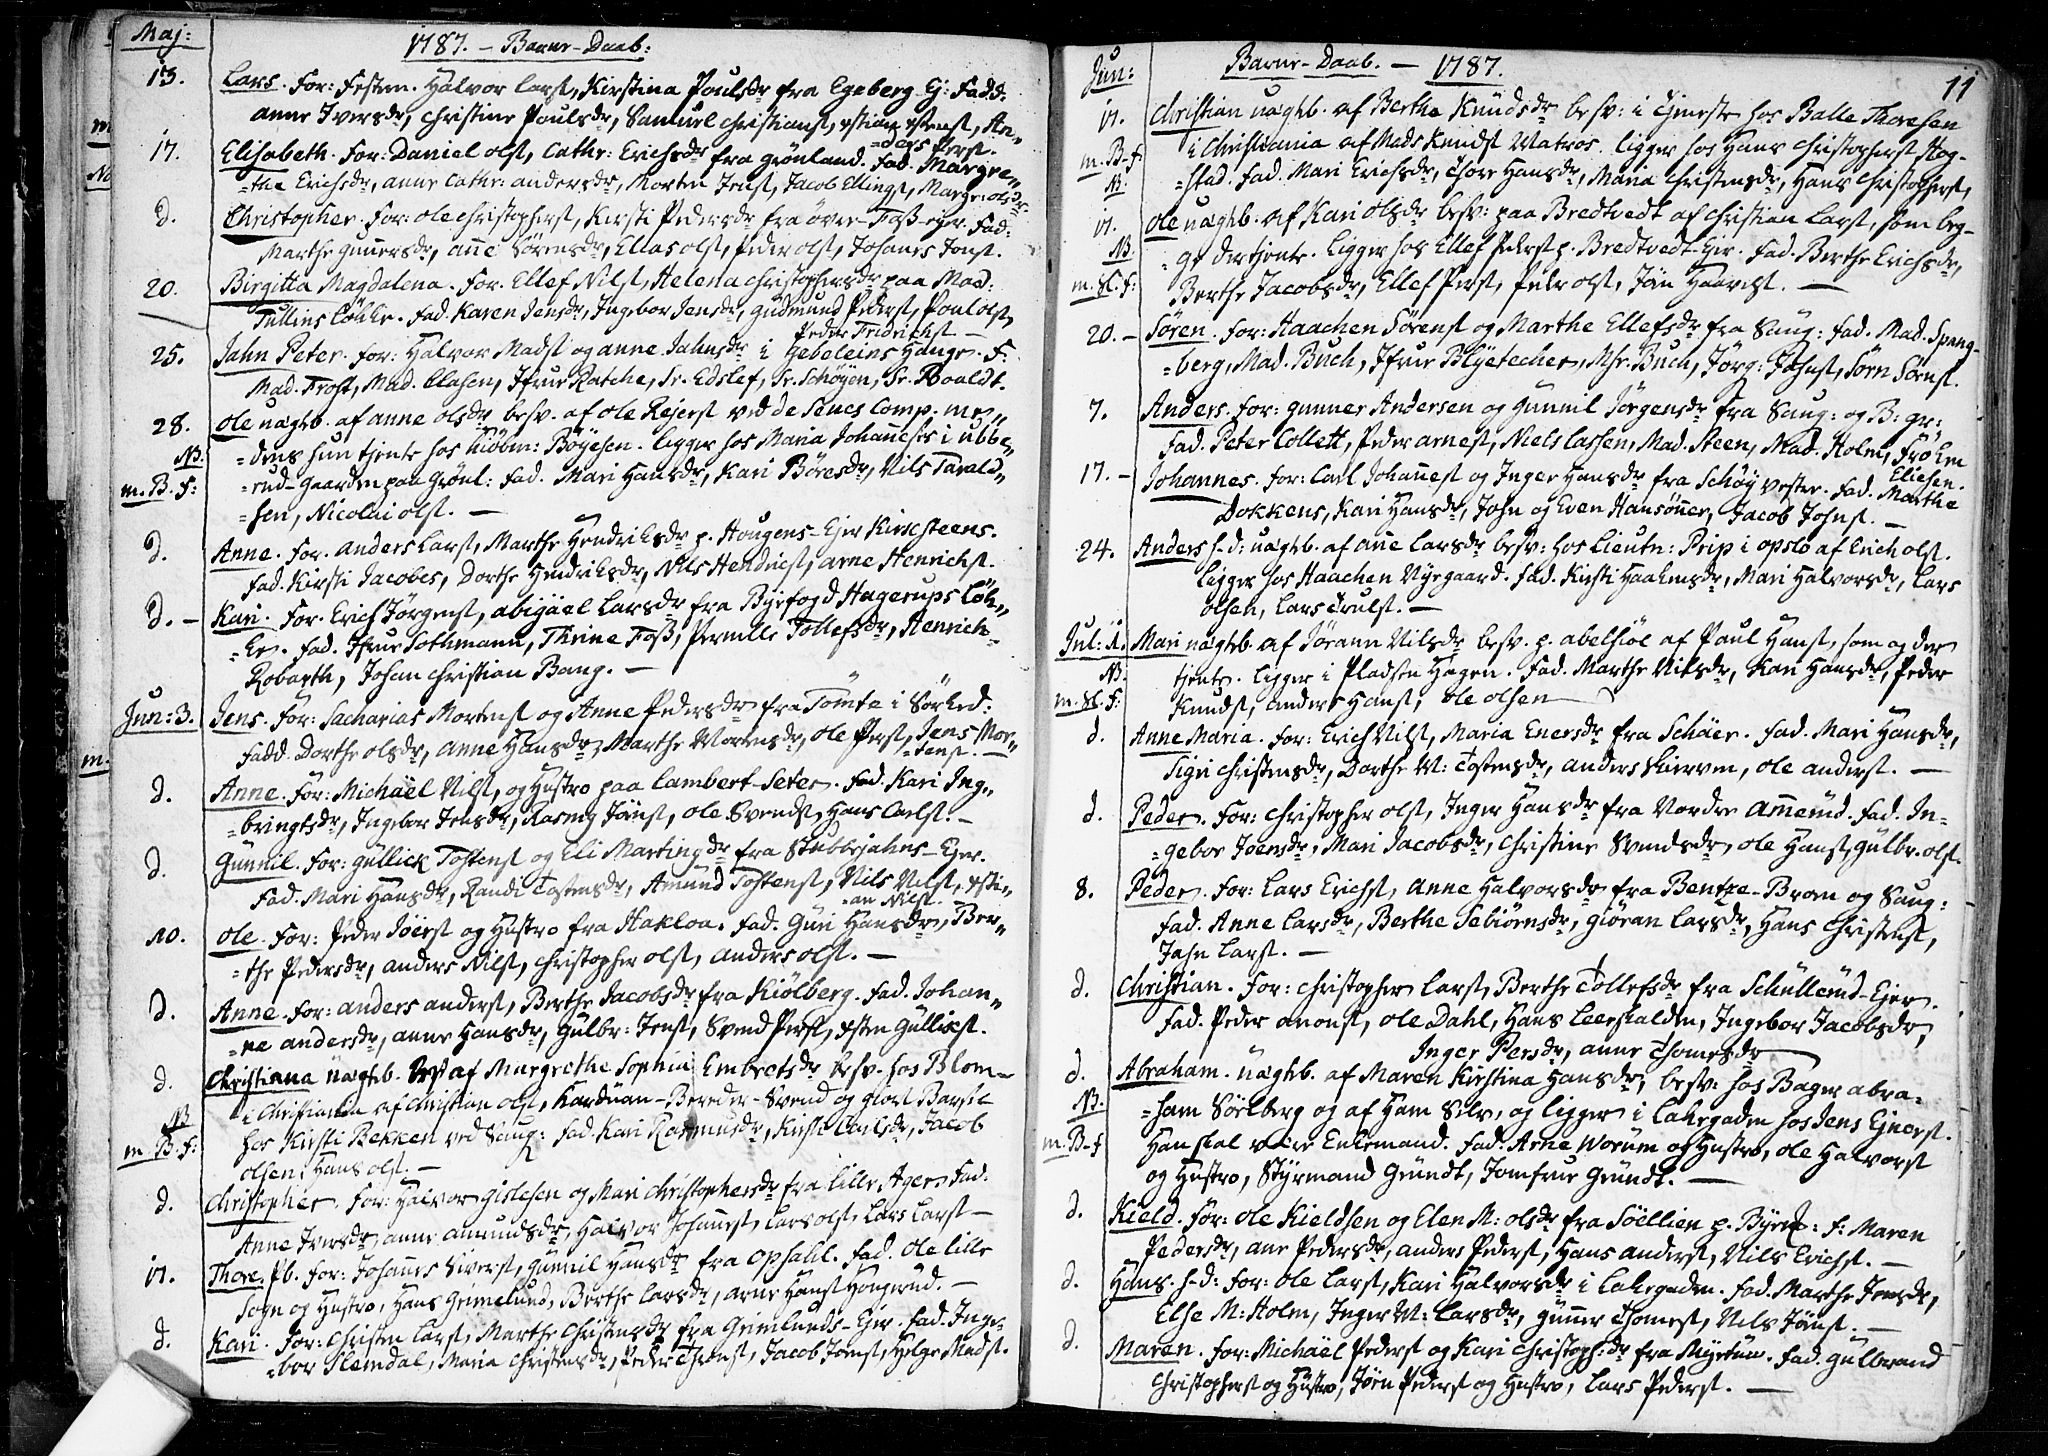 Maj: 1787. – Barne-Daab:
13. Lars. For: Festem. Halvor Larsø, Kirstina Poulsdr fra Egeberg Ej: Fadd:
Anne Iversdr, Christine Poulsdr, Samuel Christiansø,
17. Elisabeth. For: Daniel Olsø, Cathr: Erichsdr fra Grönland. Fad. Margre=
=the Erichsdr, Anne Cathr: Andersdr, Morten Jensø, Jacob Ellingsø, Margr: Olsdr.
D. Christopher. For: Ole Christophersø, Kirsti Pedersdr fra övre-Foss-Ejer. Fad:
Marthe Gunnersdr, Anne Sörensdr, Ellas Olsø, Peder Olsø, Johanes Jonsø.
20. Birgitta Magdalena. For. Ellef Nilsø, Helena Christophersdr paa Mad:
Tullins Lökke. Fad. Karen Jensdr, Ingebor Jensdr, Gudmund Pedersø, Poul Olsø,
Peder Fridrichsø
25. Jahn Peter. For: Halvor Madsø og Anne Jahnsdr i Gebeleins Hauge. F:
Mad. Frost, Mad. Clasen, Jfrue Ratche, Sr. Edslef, Sr. Schöyen, Sr. Roaldt.
28. Ole uægtb. af Anne Olsdr besv. af Ole Rejersø ved de Senes Comp. me=
NB. =dens hun tjente hos Kiöbm: Böyesen. ligger hos Maria Johannesdr i Ubbe=
m. B. F: =rud-Gaarden paa Grönl: Fad. Mari Hansdr, Kari Böresdr, Nils Tarald=
=sen, Nicolai Olsø. –
D. Anne. For. Anders Larsø, Marthe Hendrichsdr p. Hougens-Ejer Kirksteens.
Fad. Kirsti Jacobes, Dorthe Hendrichsdr, Nils Hendricsø, Arne Henrichsø.
D. – Kari. For. Erich Jörgensø, Abigael Larsdr fra Byefogd Hagerups Lök=
=ke. Fad. Jfrue Lothmann, Thrine Foss, Pernille Tollefsdr, Henrich
Robarth, Johan Christian Bang. –
Jun: 3. Jens. For: Sacharias Mortensø og Anne Pedersdr fra Tömte i Sörked:
Fadd. Dorthe Olsdr, Anne Hansdr, Marthe Mortensdr, Ole Persø, Jens Mor=
=tensø.
D. Anne. For: Michael Nilsø, og Hustro paa Lambert-Seter. Fad. Kari Ing=
=bringtsdr, Ingebor Jensdr, Rasmus Jönsø, Ole Svendsø, Hans Carlsø. –
D. Gunnil. For: Gullick Tostensø og Eli Martinsdr fra Stubberjahns-Ejer.
Fad. Mari Hansdr, Randi Tostensdr, Amund Tostensø, Nils Nilsø, xsti=
=an Nilsø.
10. Ole. For: Peder Joersø og Hustro fra Hakloa. Fad. Guri Hansdr, Ber=
=the Pedersdr, Anders Nilsø, Christopher Olsø, Anders Olsø. –
D. Anne. For: Anders Andersø, Berthe Jacobsdr fra Kiölberg. Fad. Johan=
=ne Andersdr, Anne Hansdr, Gulbr: Jensø, Svend Persø, xsten Gullicsø.
D. Christiana uægtb. af Margrethe Sophia Embretsdr besv. hos Blom–
NB i Christiania af Christian Olsø, Karduan-Bereder-Svend og giort Barsel
m. B. F: hos Kirsti Bekken ved Saug: Fad. Kari Rasmusdr, Kirsti Carlsdr, Jacob
Olsen, Hans Olsø. –
D. Christopher. For: Halvor Gislesen og Mari Christophersdr fra lille Ager. Fad:
Anne Iversdr, Anne Amundsdr, Halvor Johannesø, Lars Olsø, Lars Larsø –
11. Thore. Pb. For: Johannes Siversø, Gunnil Hansdr fra Opsahl. Fad. Ole lille
Sogn og Hustro, Hans Grimelund, Berthe Larsdr, Arne Hansø Hougerud. –
D. Kari. For: Christen Larsø, Marthe Christensdr fra Grimlunds-Ejer. Fad. Inge=
=bor Slemdal, Maria Christensdr, Peder Jacob Joensø, Helge Madsø.
Jun: Barne-Daab. – 1787. 11
11. Christian uægtb. af Berthe Knudsdr besv: i Tjeneste hos Balle Thoresen
m. B-f. i Christiania af Mads Knudsø Matros. ligger hos Hans Christophersø Hog=
NB. =stad. Fad. Mari Erichsdr, Thore Hansdr, Maria Christensdr, Hans Christophersø,
11. Ole uægtb. af Kari Olsdr besv: paa Bredtvedt af Christian Larsø, som beg=
NB. =ge der tjente. Ligger hos Ellef Pedersø p. Bredtvedt-Ejer. Fad. Berthe Erichsdr,
m. Sl. f: Berthe Jacobsdr, Ellef Persø, Peder Olsø, Jön Haarchsø. –
20. – Sören. For: Haachen Sörensø og Marthe Ellefsdr fra Saug: Fad. Mad. Spang=
=berg, Mad. Buch, Jfrue Blyetecher, Msr. Buch, Jörg: Johnsø, Sörn Sörnsø.
7. Anders. For: Gunner Andersen og Gunnil Jörgensdr fra Saug: og B: gr:
Fad. Peter Collett, Peder Arnesø, Niels Lassen, Mad. Steen, Mad. Holm, Fröken
Eliesen.
17. – Johannes. For: Carl Johannesø og Inger Hansdr fra Schöy vestre. Fad. Marthe
Dokkens, Kari Hansdr, John og Even Hansönner, Jacob Johnsø. –
24. Anders h. d: uægtb. af Ane Larsdr besv: hos Lieutn: Prip i Opslo af Erich Olsø.
ligger hos Haachen Nyegaard. Fad. Kirsti Haakensdr, Mari Halvorsdr, Lars
Olsen, Lars Trulsø. –
Jul: 1. Mari uægtb. af Jörann Nilsdr besv. p. Abelsiöe af Paul Hansø, som og der
NB. tjente. ligger i Pladsen Hagen. Fad. Marthe Nilsdr, Kari Hansdr, Peder
m. Sl. f: Knudsø, Anders Hansø, Ole Olsen
d. Anne Maria. For: Erich Nilsø, Maria Enersdr fra Schöer. Fad. Mari Hansdr,
Sigri Christensdr, Dorthe M: Tostensdr, Anders Skierven, Ole Andersø. –
d. Peder. For: Christopher Olsø, Inger Hansdr fra Nordre Ammerud. Fad. In=
=gebor Joensdr, Mari Jacobsdr, Christine Svendsdr, Ole Hansø, Gulbr. Olsø.
8. Peder. For: Lars Erichsø, Anne Halvorsdr fra Bentze-Broen og Saug:
Fad. Anne Larsdr, Berthe Sebiörnsdr, Giöran Larsdr, Hans Christensø,
Jahn Larsø. –
d. Christian. For: Christopher Larsø, Berthe Tollefsdr fra Schullerud-Ejer.
Fad. Peder Ole Dahl, Hans Leerskalden, Ingebor Jacobsdr,
Inger Persdr, Anne Thomesdr
d. Abraham. Uægtb. af Maren Kirstina Hansdr, besv: hos Bager Abra=
NB. =ham Söelberg og af Ham Selv, og ligger i Lakegaden hos Jens Ejnersø.
m. B-f Han skal være Enkemand. Fad. Arne Worum og Hustro, Ole Halvorsø
og Hustro, Styrmand Grundt, Jomfrue Grundt. –
d. Kield. For: Ole Kieldsen og Elen M: Olsdr fra Söellien p. f: Maren
Pedersdr, Ane Pedersdr, Anders Pedersø, Hans Andersø, Nils Erichsø. –
d. Hans. h-d: For: Ole Larsø, Kari Halvorsdr i Lakegaden. Fad. Marthe Jensdr,
Else M: Holm, Inger M: Larsdr, Gunner Thomesø, Nils Jönsø. –
d. Maren. For: Michael Pedersø og Kari Christoph:dr fra Myreun. Fad. Gulbrand
Christophersø og Hustro, Jörn Pedersø og Hustro, Lars Pedersø. –